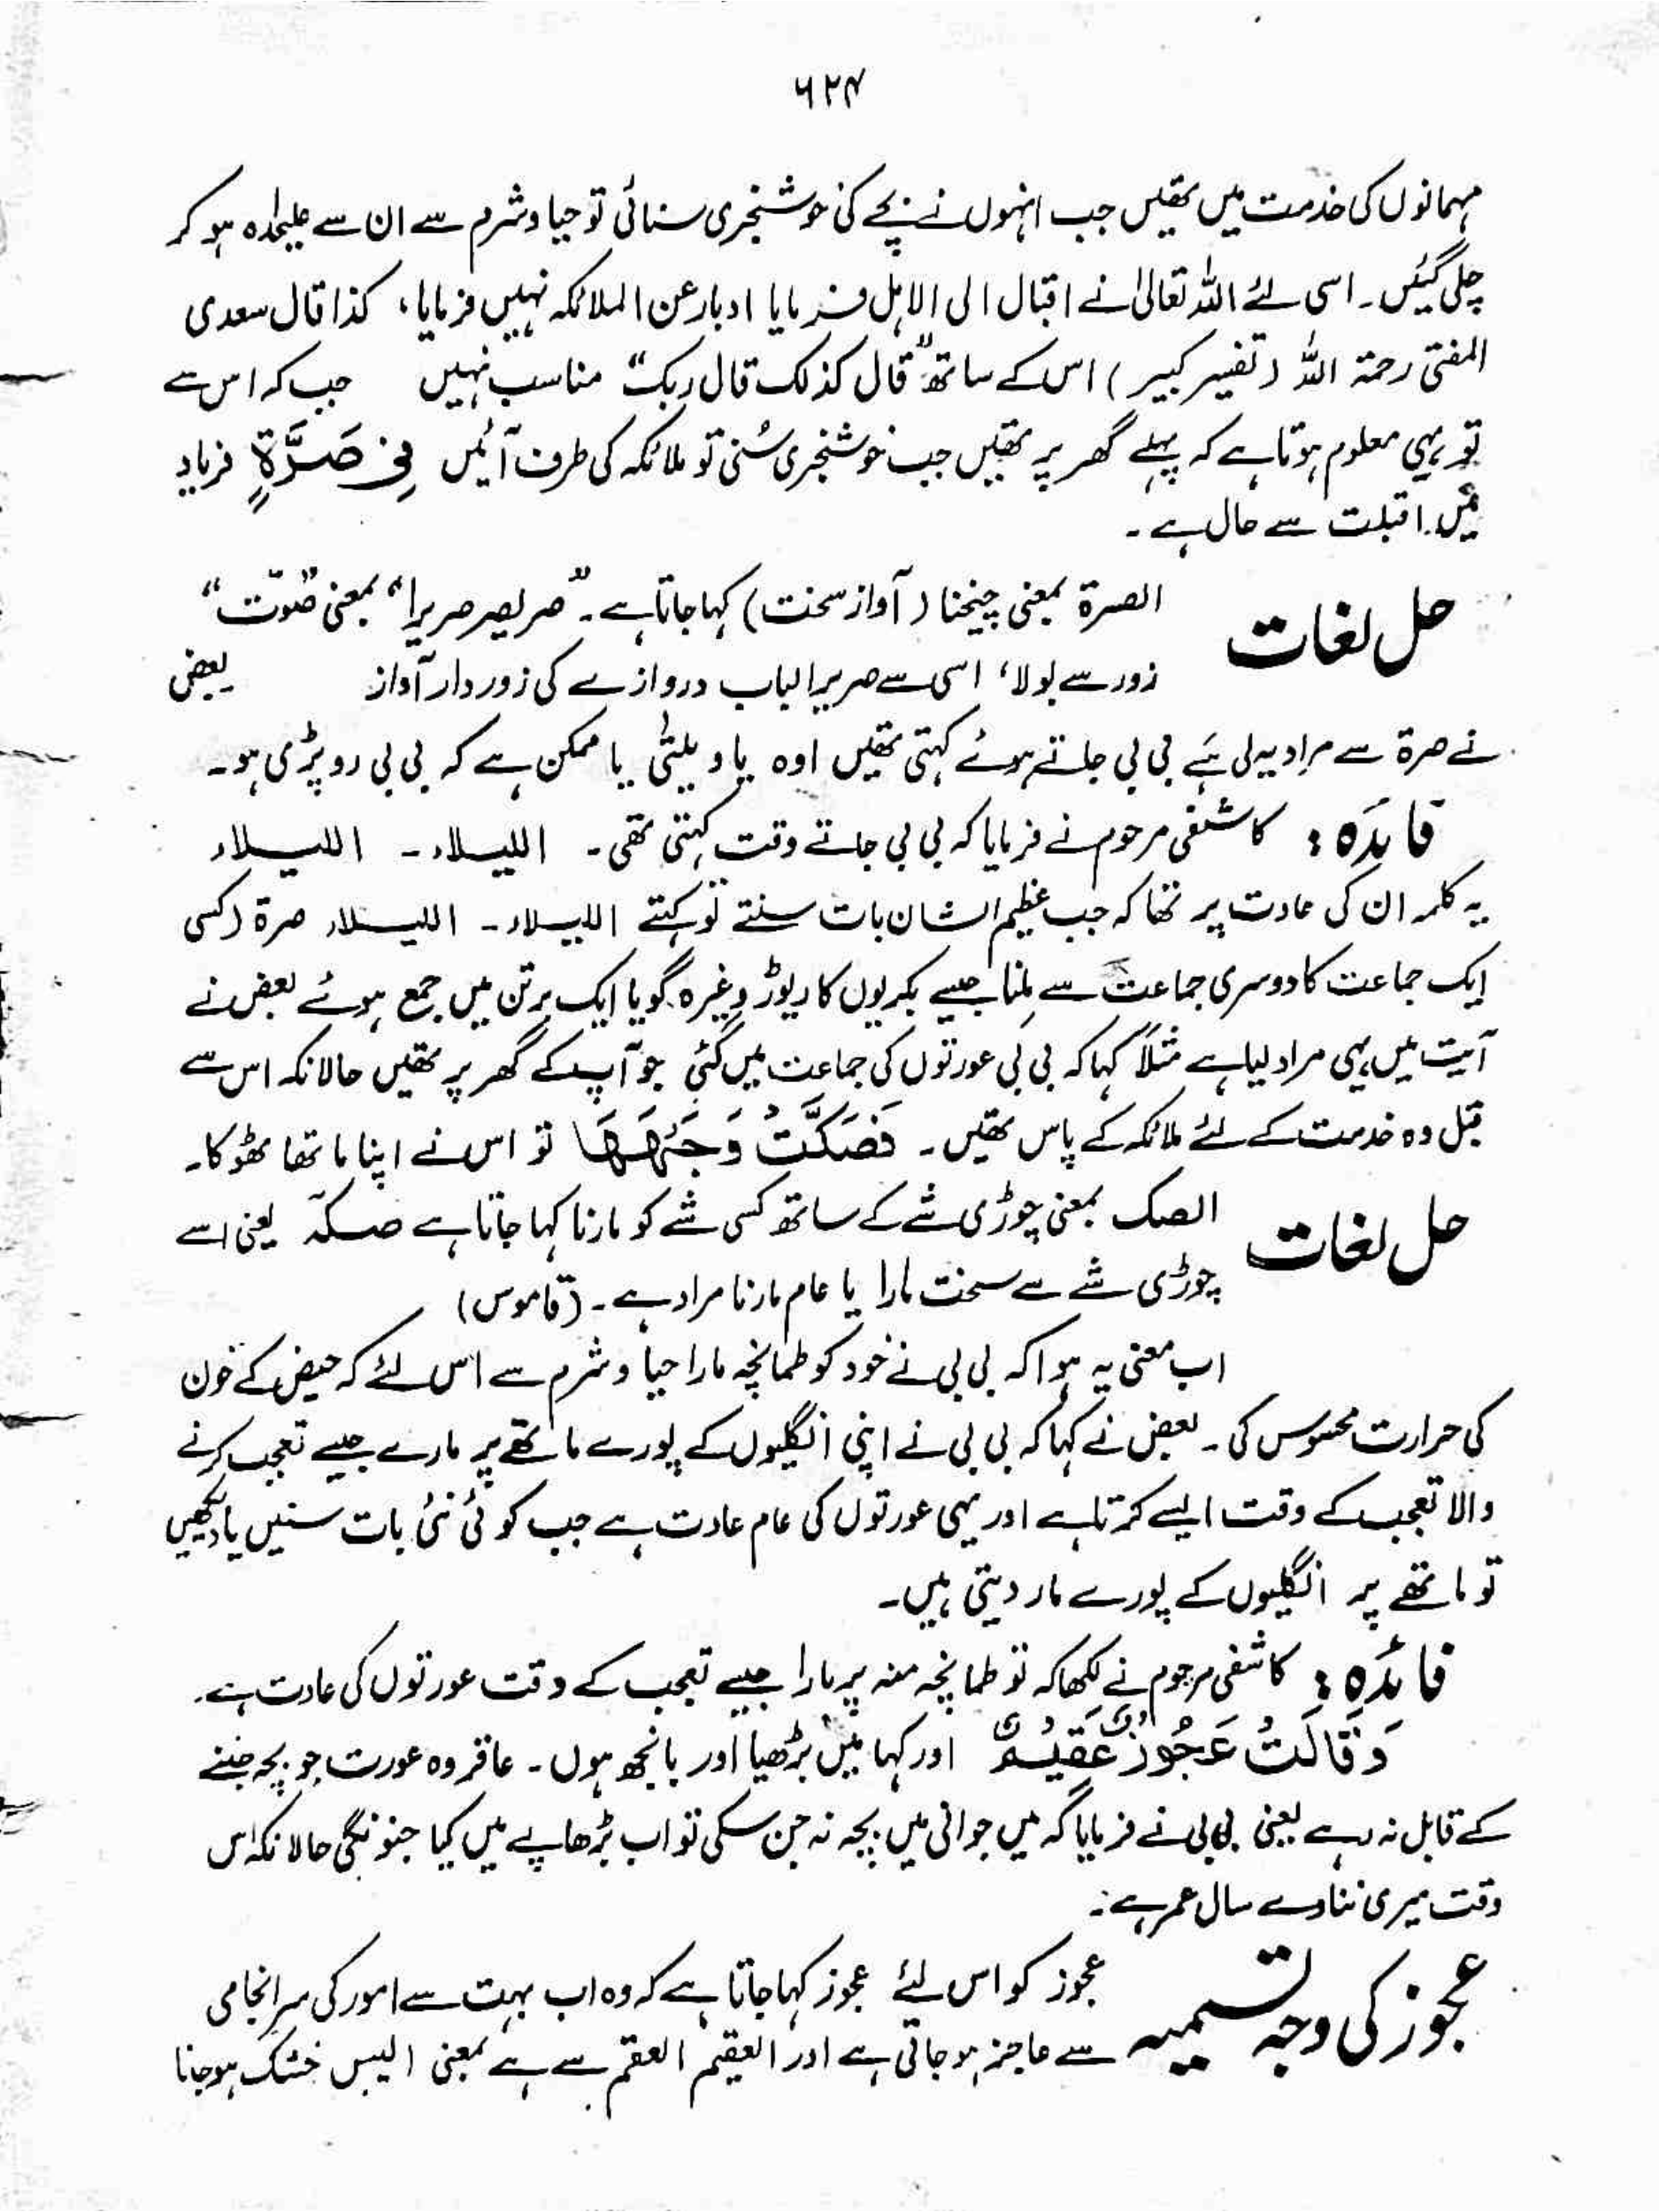 ۶۲۴
مہمانوں کی خدمت میں تھیں جب انہوں نے بچے کی خوشخبری سنائی تو حیا و شرم سے ان سے علیحدہ ہو کر
چلی گئیں۔ اسی لئے اللہ تعالیٰ نے اقبال الی الاہل فرمایا ادبار عن الملائکہ نہیں فرمایا، کذا قال سعدی
المفتی رحمۃ اللہ (تفسیر کبیر) اس کے ساتھ "قال کذلک قال ربک" مناسب نہیں جب کہ اس سے
تو یہی معلوم ہوتا ہے کہ پہلے گھر پر تھیں جب خوشخبری سُنی تو ملائکہ کی طرف آئیں فِیْ صَرَّۃٍ فریاد
میں۔ اقبلت سے حال ہے۔
حل لغات
الصرۃ بمعنی چیخنا (آواز سخت) کہا جاتا ہے۔ "صر یصر صریرا" بمعنی "صَوّت"
زور سے بولا، اسی سے صریر الباب دروازے کی زور دار آواز بعض
نے صرۃ سے مراد یہ لی ہے بی بی جاتے ہوئے کہتی تھیں اوہ یا ویلتیٰ یا ممکن ہے کہ بی بی رو پڑی ہو۔
فائدہ : کاشفی مرحوم نے فرمایا کہ بی بی جاتے وقت کہتی تھی۔ اللیسلاء۔ اللیسلاء
یہ کلمہ ان کی عادت پر تھا کہ جب عظیم الشان بات سنتے تو کہتے اللیسلاء۔ اللیسلاء صرۃ (کسی
ایک جماعت کا دوسری جماعت سے ملنا جیسے بکریوں کا ریوڑ وغیرہ گویا ایک برتن میں جمع ہوئے بعض نے
آیت میں یہی مراد لیا ہے مثلاً کہا کہ بی بی عورتوں کی جماعت میں گئی جو آپ کے گھر پر تھیں حالانکہ اس سے
قبل وہ خدمت کے لئے ملائکہ کے پاس تھیں۔ فَصَکَّتْ وَجْہَہَا تو اس نے اپنا ماتھا ٹھوکا۔
حل لغات
الصک بمعنی چوڑی شے کے ساتھ کسی شے کو مارنا کہا جاتا ہے صکہ یعنی اسے
چوڑی شے سے سخت مارا یا عام مارنا مراد ہے۔ (قاموس)
اب معنی یہ ہوا کہ بی بی نے خود کو طمانچہ مارا حیا و شرم سے اس لئے کہ حیض کے خون
کی حرارت محسوس کی۔ بعض نے کہا کہ بی بی نے اپنی انگلیوں کے پورے ماتھے پر مارے جیسے تعجب کرنے
والا تعجب کے وقت ایسے کرتا ہے اور یہی عورتوں کی عام عادت ہے جب کوئی نئی بات سنیں یا دیکھیں
تو ماتھے پر انگلیوں کے پورے مار دیتی ہیں۔
فائدہ : کاشفی مرحوم نے لکھا کہ تو طمانچہ منہ پر مارا جیسے تعجب کے وقت عورتوں کی عادت ہے۔
وَقَالَتْ عَجُوْزٌ عَقِیْمٌ اور کہا میں بڑھیا اور بانجھ ہوں۔ عاقر وہ عورت جو بچہ جننے
کے قابل نہ رہے یعنی بی بی نے فرمایا کہ میں جوانی میں بچہ نہ جن سکی تو اب بڑھاپے میں کیا جنونگی حالانکہ اس
وقت میری ننانوے سال عمر ہے۔
عجوز کی وجہ تسمیہ
عجوز کو اس لئے عجوز کہا جاتا ہے کہ وہ اب بہت سے امور کی سرانجامی
سے عاجز ہو جاتی ہے اور العقیم العقم سے ہے بمعنی الیبس خشک ہو جانا